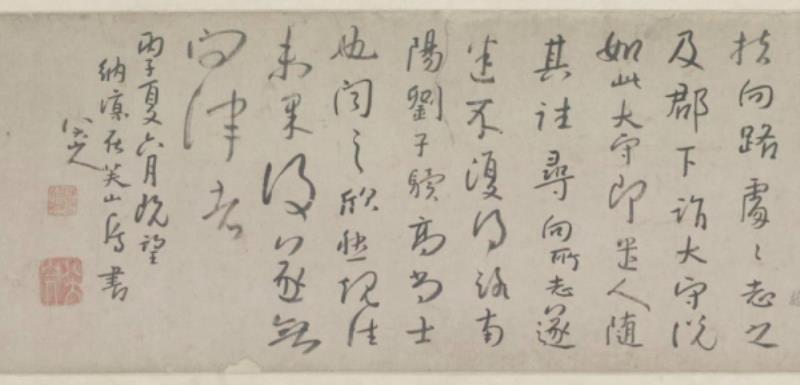 扶向路處〻志之
及郡下詣大守說
如此大守即遣人隨
其往尋向所志遂
迷不復得路南
陽劉子驥高尚士
也聞之欣然規往
未果後遂無
問津者
丙子夏六月既望
納涼在芙山房書
八大山人